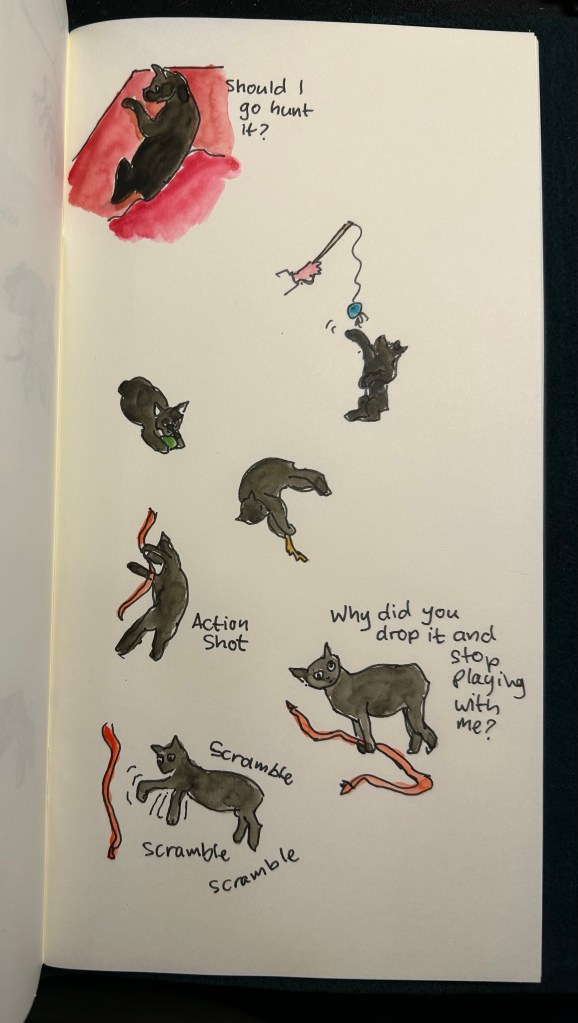 Should I
go hunt
it?
Action
Shot
Why did you
drop it and
stop
playing
with
me?
Scramble
Scramble
Scramble